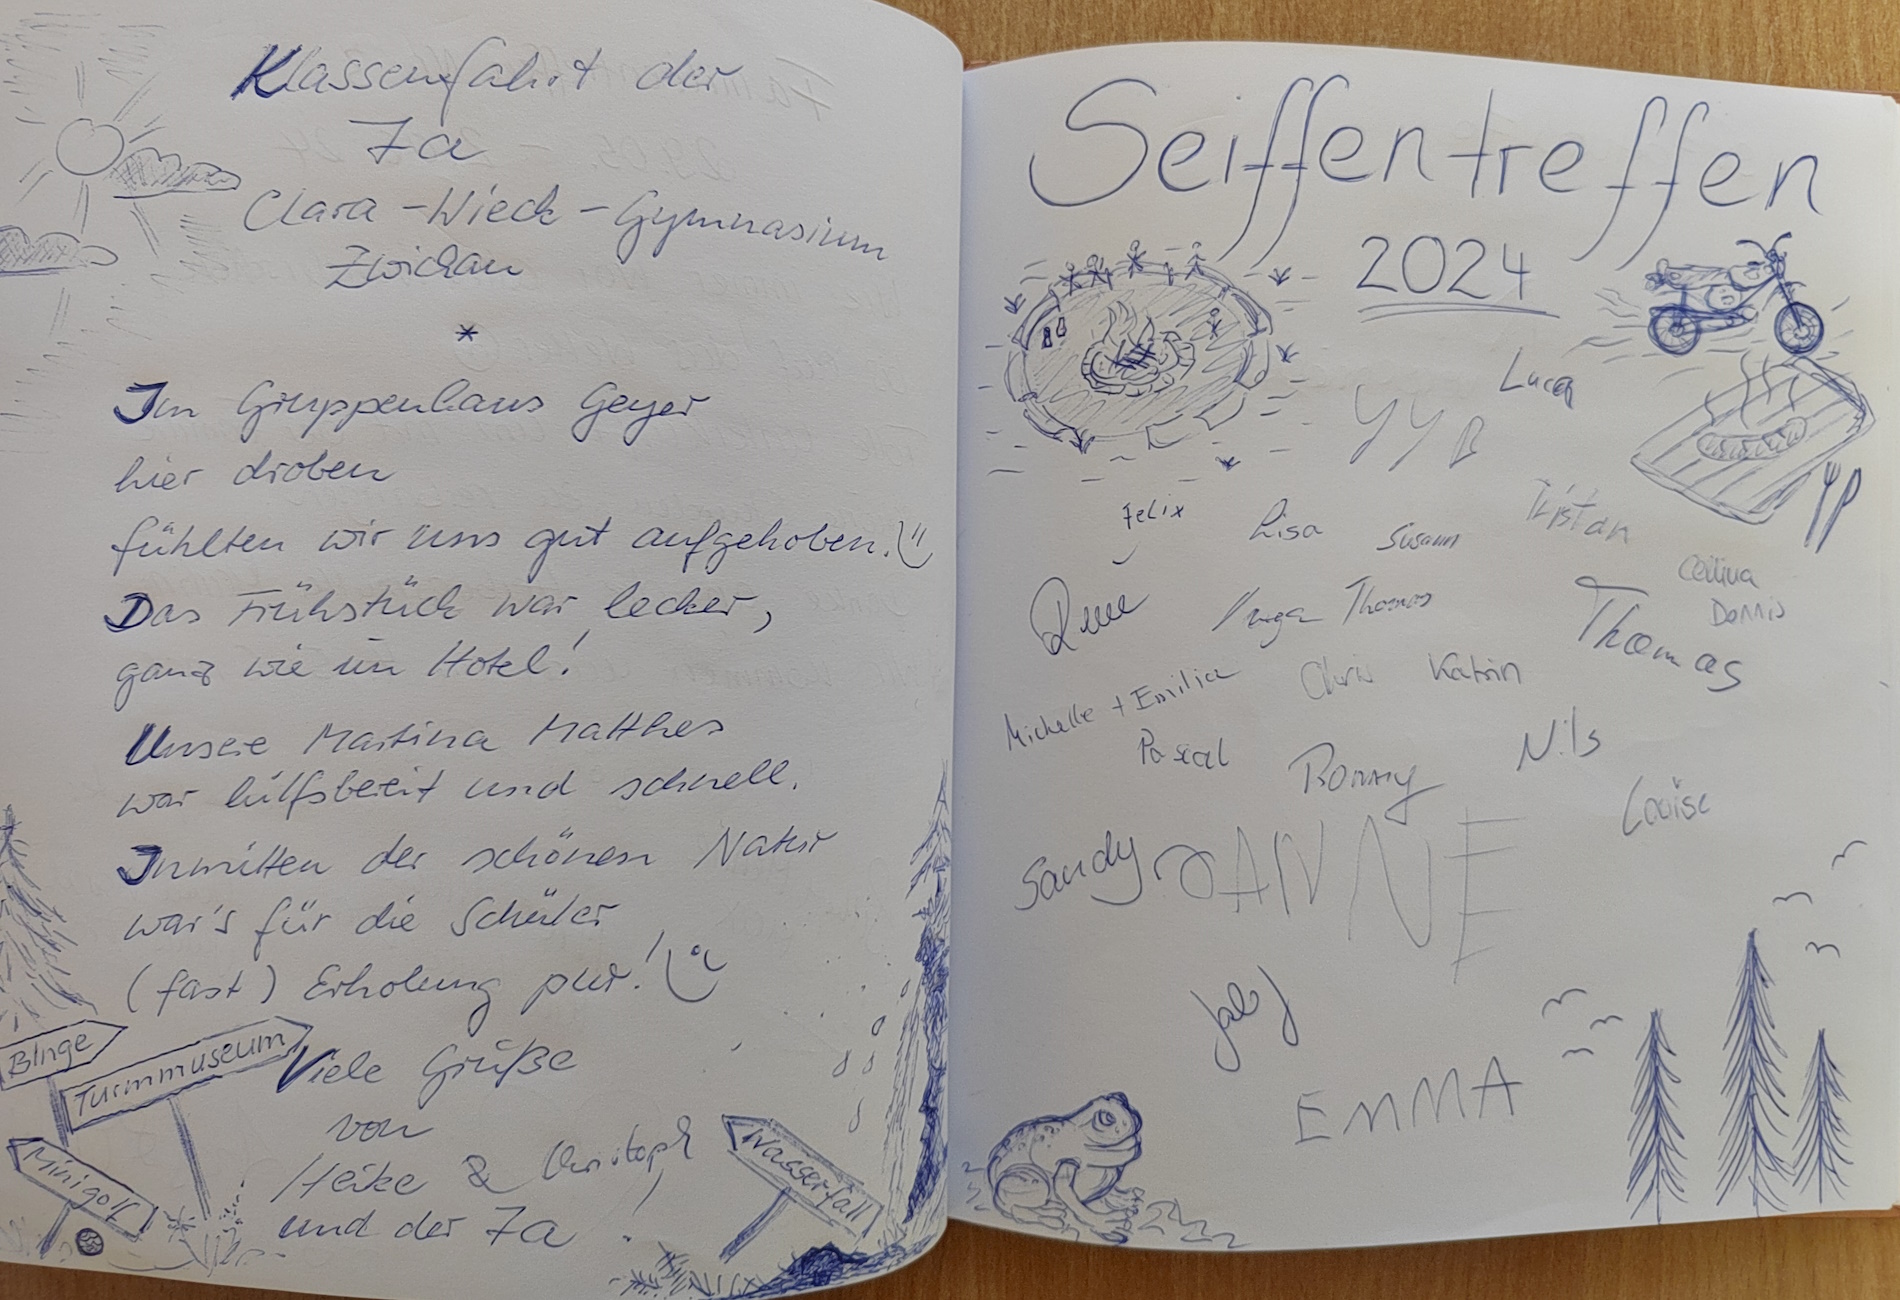 Klassenfahrt der
7a
Clara-Wieck-Gymnasium
Zwickau
*
Im Gruppenhaus Geyer
hier droben
fühlten wir uns gut aufgehoben.
Das Frühstück war lecker,
ganz wie im Hotel!
Unsere Martina Matthes
war hilfsbereit und schnell.
Inmitten der schönen Natur
war's für die Schüler
(fast) Erholung pur!
Viele Grüße
von
Heike & Christoph
und der 7a!
Binge
Turmmuseum
Minigolf
Wasserfall
Seiffentreffen
2024
Luca
Felix
Lisa
Susann
Tristan
Dennis
Rene
Thomas
Thomas
Michelle + Emilia
Chris
Katrin
Pascal
Ronny
Nils
Louise
Sandy
ANNE
EMMA